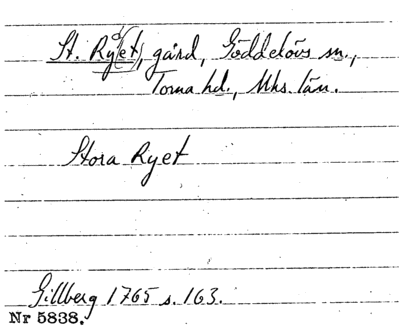 St. Ry(et), gård, Göddelövs sn.,
Torna hd., Mhs. län.
Stora Ryet
Gillberg 1765 s. 163.
Nr 5838.